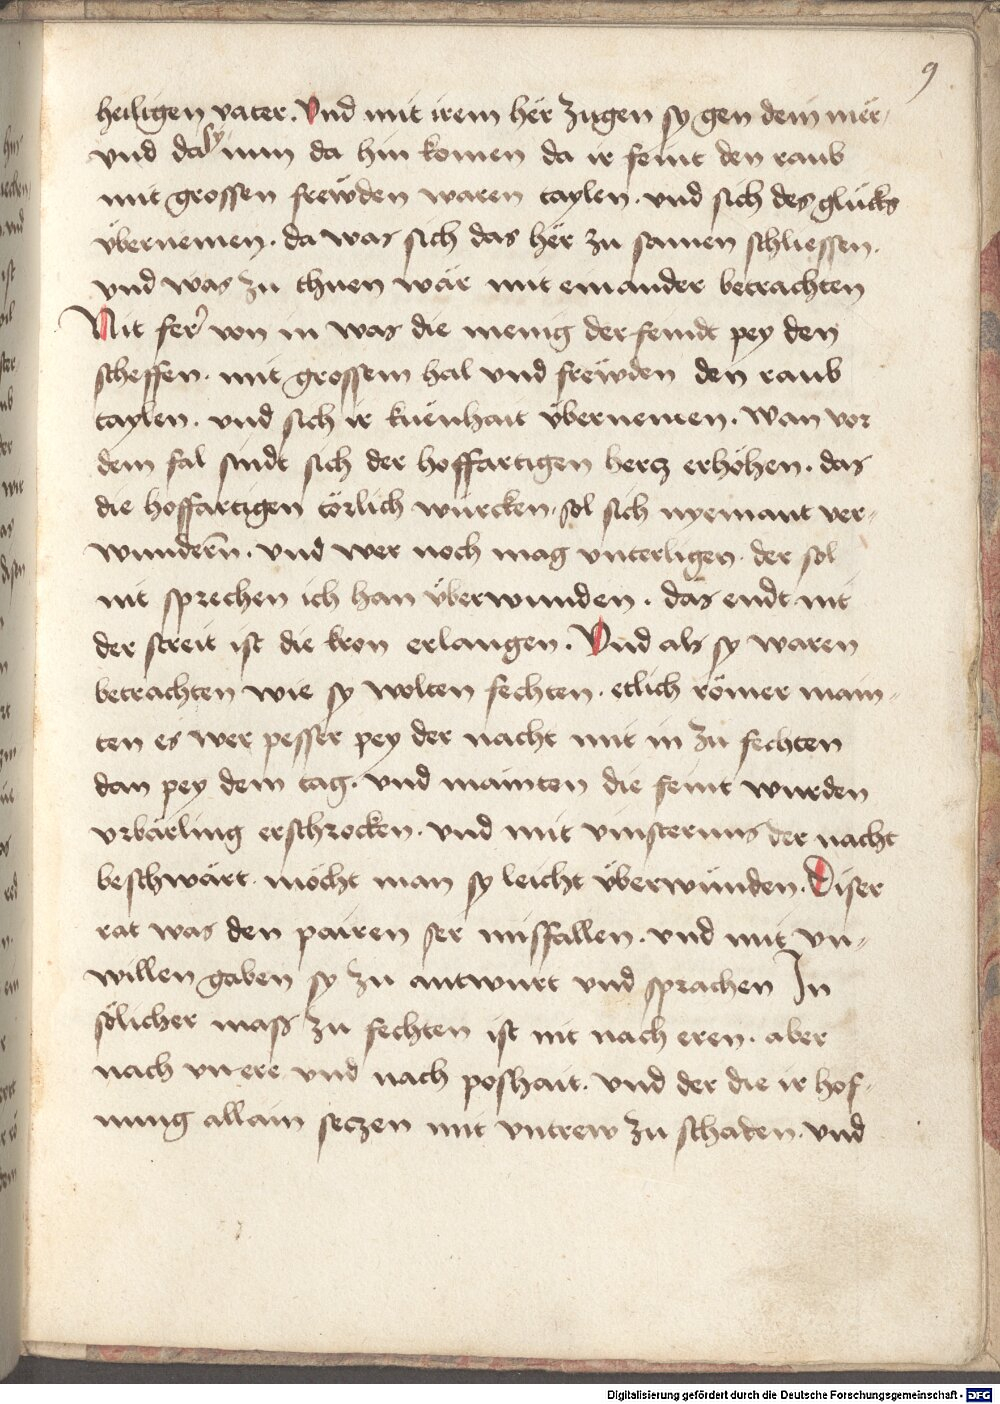 9
heiligen vater. Vnd mit irem her zugen sy gen dem mer.
vnd da sy nun da hin komen da ir feint den raub
mit grossen frewden waren taylen. vnd sich des glücks
übernemen. da was sich das her zu samen schliessen.
vnd was zu thuen wär mit einander betrachten
Nit fer von in was die menig der feindt pey den
scheffen. mit grossem hal vnd frewden den raub
taylen. vnd sich ir küenhait übernemen. wan vor
dem fal sindt sich der hoffartigen hercz erhöhen. das
die hoffartigen törlich würcken. sol sich nyemant ver-
wundern. vnd wer noch mag vnterligen. der sol
nit sprechen ich han überwunden. das endt nit
der streit ist die kron erlangen. Vnd als sy waren
betrachten wie sy wolten fechten. etlich römer main-
ten es wer pesser pey der nacht mit in zu fechten
dan pey dem tag. vnd mainten die feint wurden
vrbärling erschrocken. vnd mit vinsternus der nacht
beschwärt. möcht man sy leicht überwünden. Diser
rat was den pairen ser missfallen. vnd mit vn-
willen gaben sy zu antwurt vnd sprachen In
sölicher mass zu fechten ist nit nach eren. aber
nach vnere vnd nach poshait. vnd der die ir hof-
nung allain seczen mit vntrew zu schaden. vnd
Digitalisierung gefördert durch die Deutsche Forschungsgemeinschaft - DFG